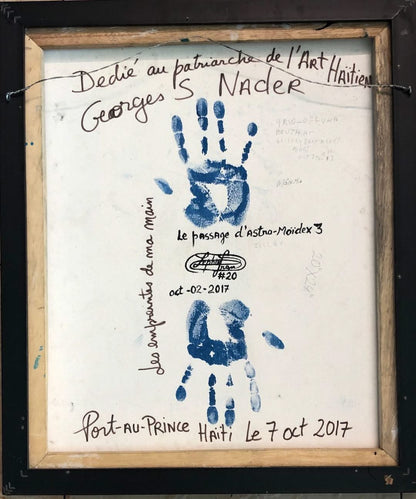 Dedié au patriarche de l'Art Haïtien
Georges S NADER
Les empreintes de ma main
Le passage d'Astro-Moïdex 3
#20
oct-02-2017
20X24"
PORT-AU-PRINCE HAÏTI Le 7 oct 2017